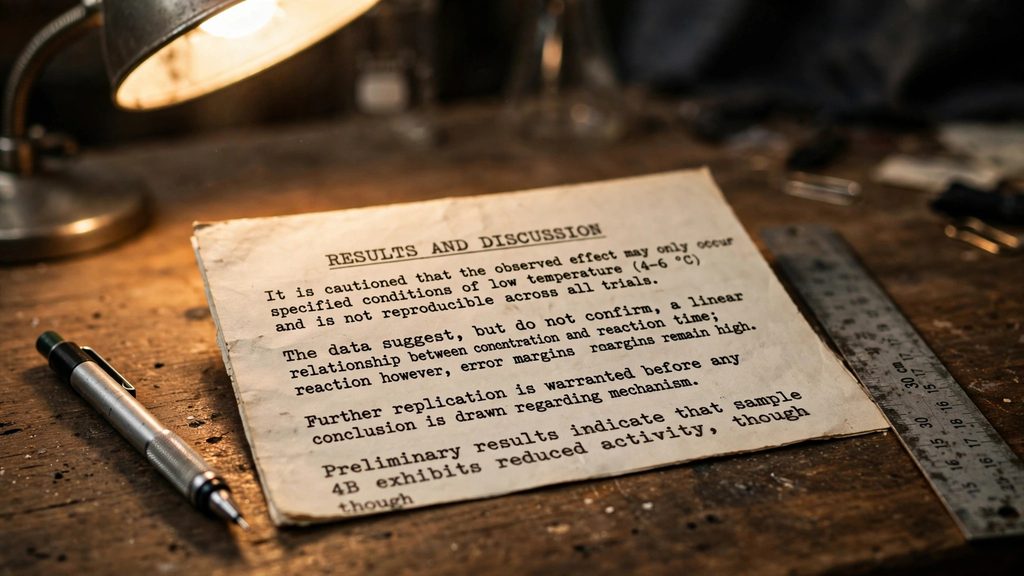 RESULTS AND DISCUSSION
It is cautioned that the observed effect may only occur
specified conditions of low temperature (4–6 °C)
and is not reproducible across all trials.
The data suggest, but do not confirm, a linear
relationship between conctntration and reaction time;
reaction however, error margins roargins remain high.
Further replication is warranted before any
conclusion is drawn regarding mechanism.
Preliminary results indicate that sample
4B exhibits reduced activity, though
though